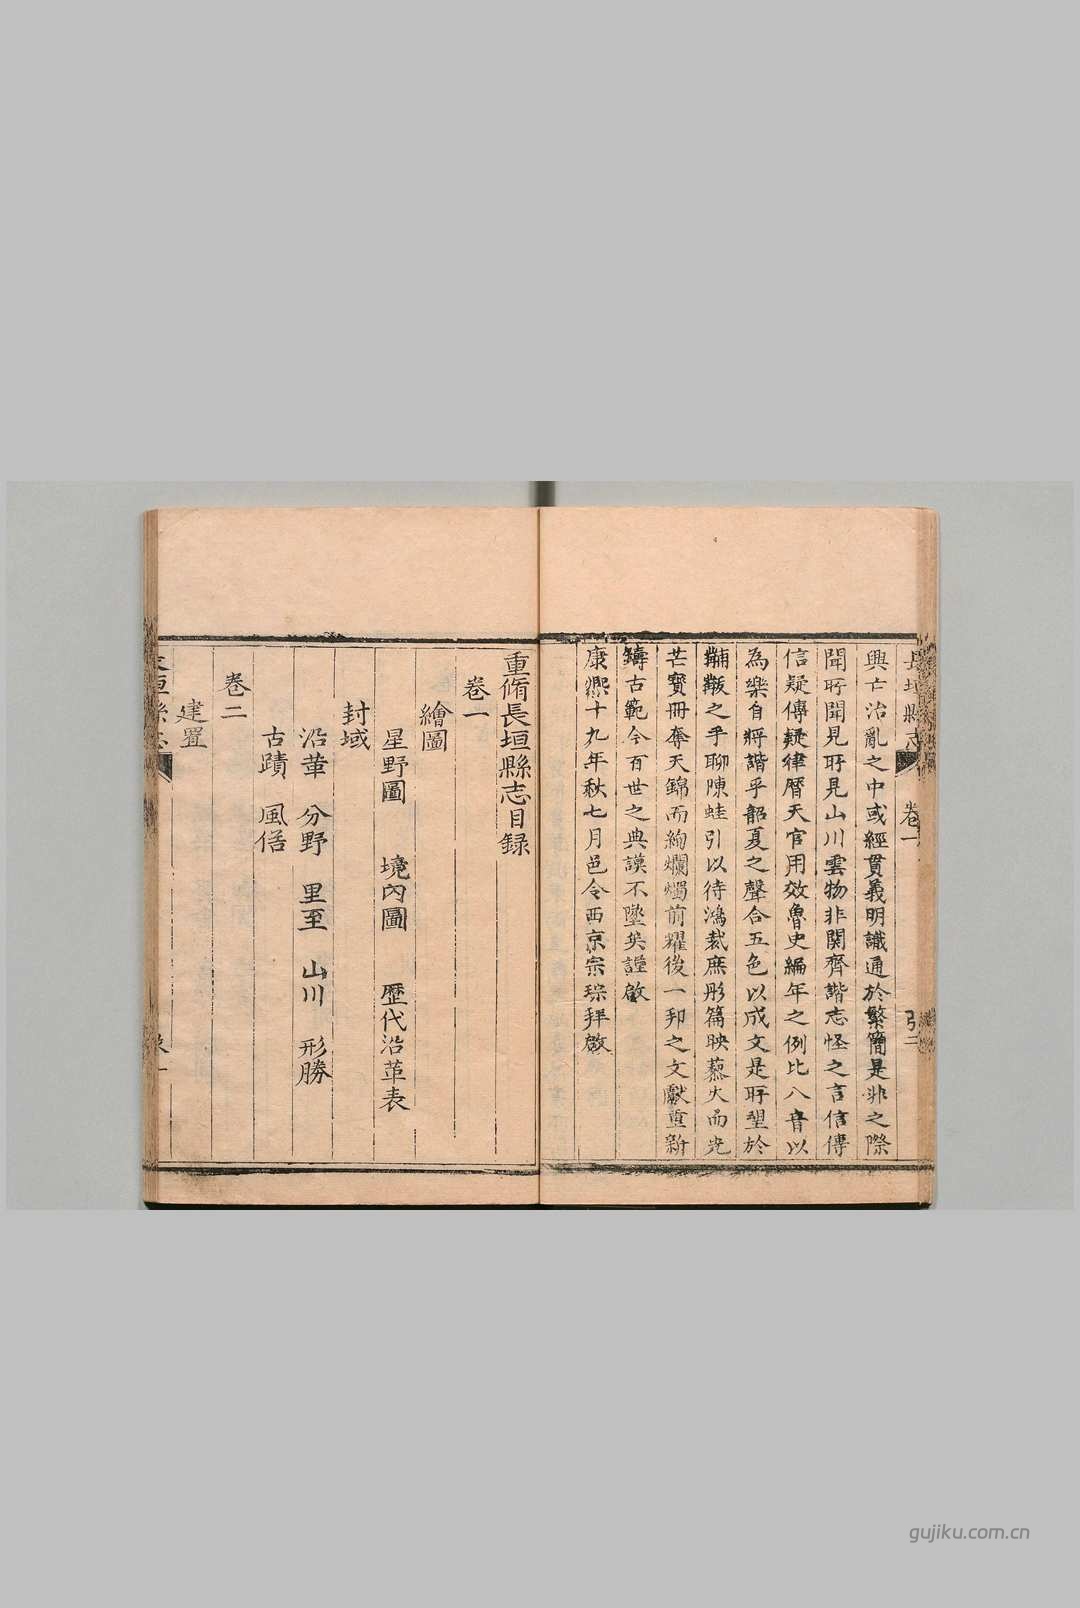 長垣縣志
卷一
引三
興亡治亂之中或經貫義明識通於繁簡是非之際
聞所聞見所見山川雲物非関齊諧志怪之言信傳
信疑傳疑律曆天官用效魯史編年之例比八音以
為樂自將諧乎韶夏之聲合五色以成文是所望於
黼黻之手聊陳蛙引以待鴻裁庶彤篇映藜火而光
芒寳冊奪天錦而絢爛燭前耀後一邦之文獻重新
鑄古範今百世之典謨不墜矣謹啟
康熈十九年秋七月邑令西京宗琮拜啟
重脩長垣縣志目録
卷一
繪圖
星野圖 境内圖 歷代沿革表
封域
沿革 分野 里至 山川 形勝
古蹟 風俗
卷二
建置